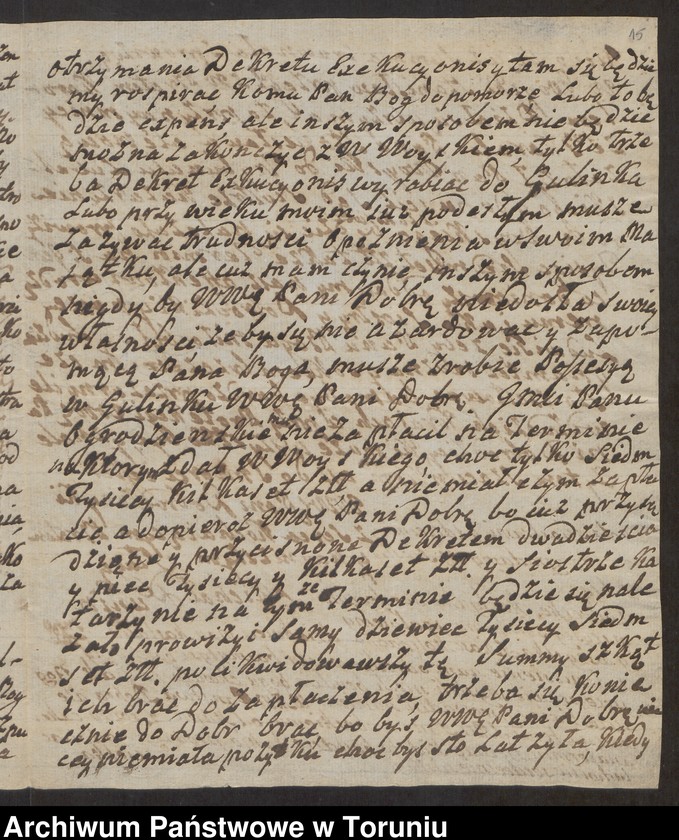 15
otrzymania Dekretu Exekucyonis y tam się będzie
my rospirac komu Pan Bog dopomoże Lubo to bę
dzie expens ale inszym sposobem nie będzie
można zakonczyc z W Woyskiem, tylko trze
ba Dekret Exkucyonis wyrabiac do Gulinka
Lubo przy wieku moim iuż podeszłym musze
zazywac trudnosci opoznienia w swoim Ma
jątku, ale cuż mam czynic inszym sposobem
nigdy by WWę Pani Dobrę niedoszła swoiey
własnosci żeby się nie azardowac y za po
mącą Pana Boga, musze zrobic
w Gulinku WWę Pani Dobrę. Panu
Ogrodzienskiemu nie zapłacil na Terminie
na ktorym zdał W Woyskiego choc tylko siedm
Tysięcy kilkaset Złł a niemiał czym zapła
cic a dopieroż WWę Pani Dobrę bo iuż przysą
dzone y przycisnone Dekretem dwadziescia
y piec Tysięcy y kilkaset Złł. y siostrze Ka
tarzynie na tymże Terminie będzie się nale
żało prowizyi samy dziewiec Tysięcy siedm
set Złł. polikwidowawszy tę Summy szkąt
ich brac do zapłacenia, trzeba się konie
cznie do Dobr brac bo byś WWę Pani Dobrę wie
cey niemiała pożytku chocbys sto Lat żyła, kiedy
Archiwum Państwowe w Toruniu